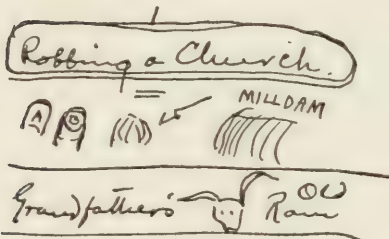 Robbing a Church.
A B MILLDAM
Grandfather's Old Ram